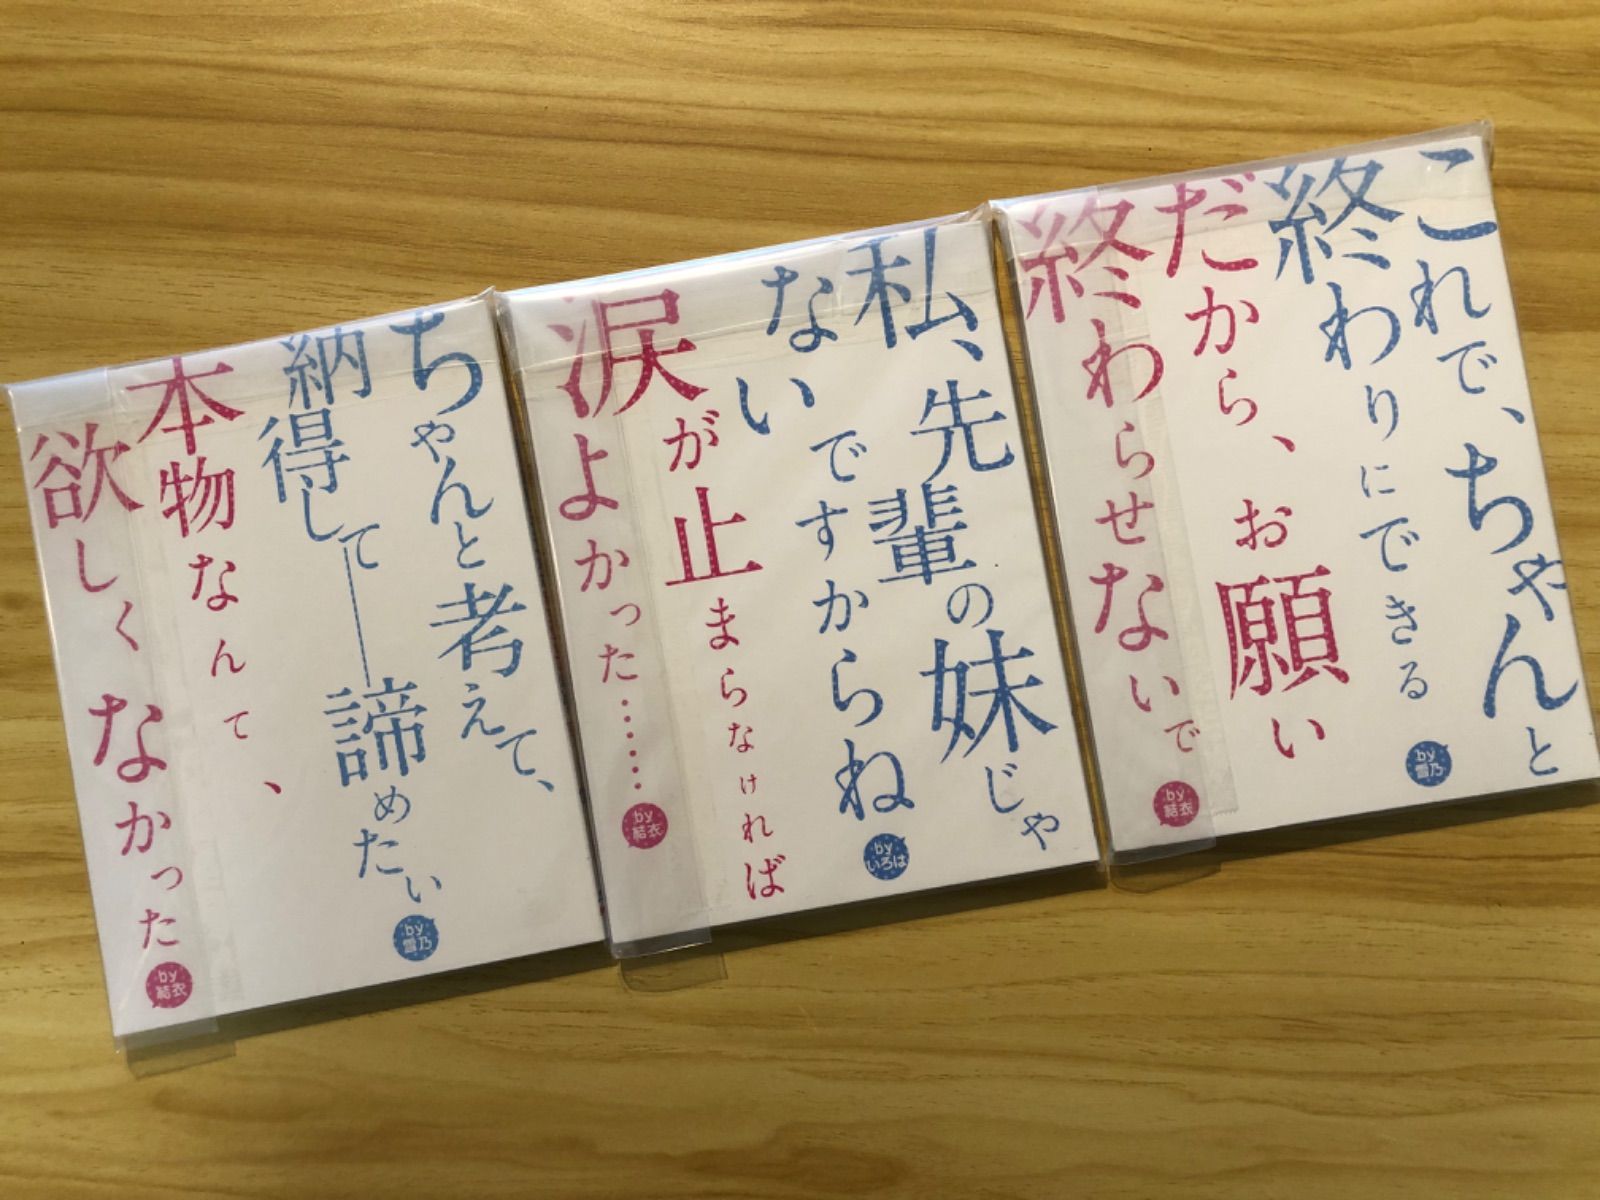 ちゃんと考えて、
納得して――諦めたい
by
雪乃
本物なんて、
欲しくなかった
by
結衣
私、先輩の妹じゃ
ないですからね
by
いろは
涙が止まらなければ
よかった………
by
結衣
これで、ちゃんと
終わりにできる
by
雪乃
だから、お願い
終わらせないで
by
結衣